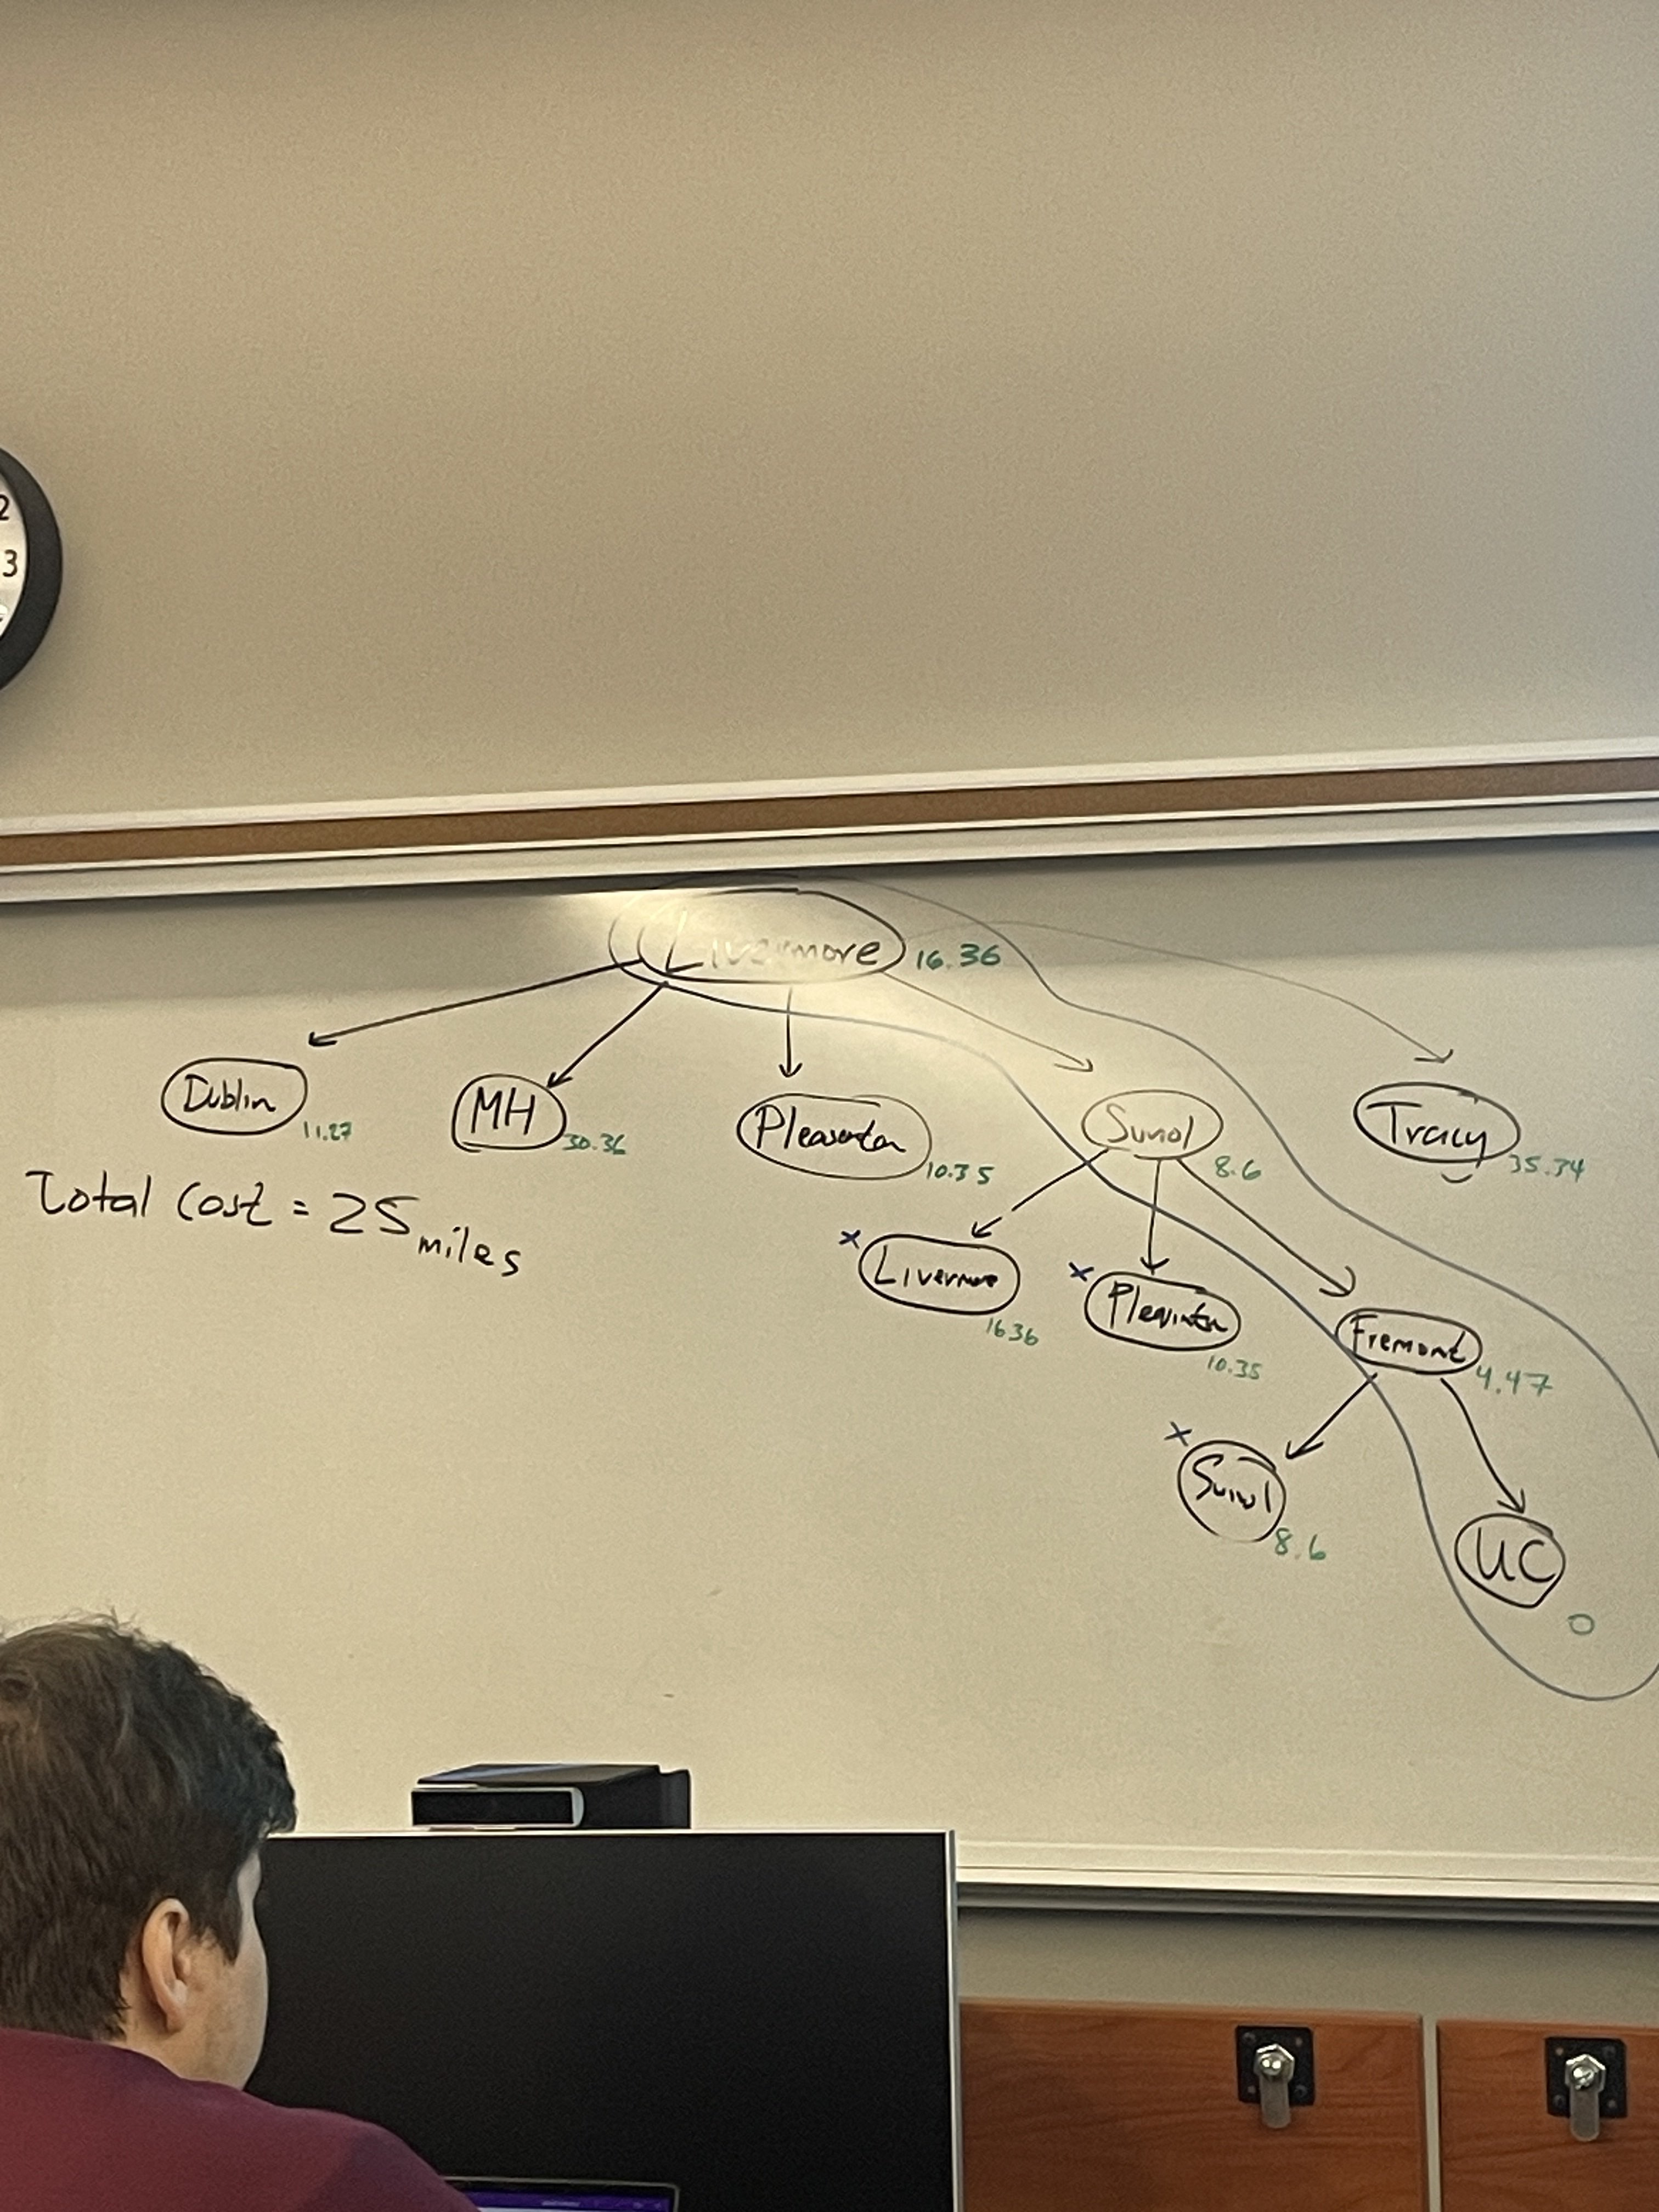 2
3
Livermore 16.36
Dublin 11.27
MH 30.36
Pleasanton 10.35
Sunol 8.6
Tracy 35.34
Total cost = 25 miles
x Livermore 16.36
x Pleasanton 10.35
Fremont 4.47
x Sunol 8.6
UC 0